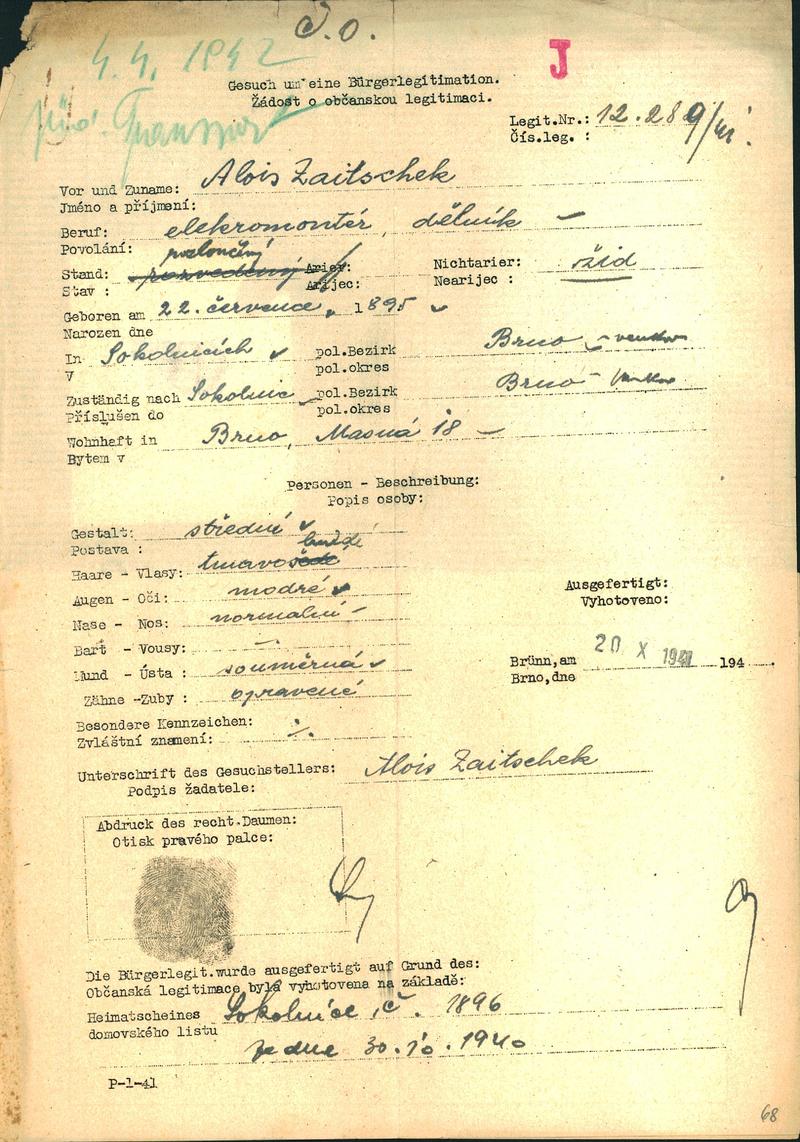 J.O.
4.4. 1942
J
Gesuch um eine Bürgerlegitimation.
Žádost o občanskou legitimaci.
Legit.Nr.: 12.289/41.
Čís.leg. :
Vor und Zuname: Alois Zaitschek
Jméno a příjmení:
Beruf: elekromontér, dělník –
Povolání:
rozloučený
Stand: rozvedený Arier: Nichtarier: žid
Stav : Arijec: Nearijec :
Geboren am 22. července 1895
Narozen dne
In Sokolnicích pol.Bezirk Brno – venkov
V pol.okres
Zuständig nach Sokolnic pol.Bezirk Brno – venkov
Příslušen do pol.okres
Wohnhaft in Brno, Masná 18 –
Bytem v
Personen - Beschreibung:
Popis osoby:
Gestalt: střední
Postava :
Haare - Vlasy: tmavošedé
Augen - Oči: modré
Nase - Nos: normalní –
Bart - Vousy: –.
Mund - Ústa : souměrná
Zähne -Zuby : opravené
Besondere Kennzeichen:
Zvláštní znamení: ·/.
Ausgefertigt:
Vyhotoveno:
Brünn,am 20 X 1941 194
Brno,dne
Unterschrift des Gesuchstellers: Alois Zaitschek
Podpis žadatele:
Abdruck des recht.Daumen:
Otisk pravého palce:
Die Bürgerlegit.wurde ausgefertigt auf Grund des:
Občanská legitimace byla vyhotovena na základě:
Heimatscheines Sokolnice, č. 1896
domovského listu
ze dne 30.10.1940
P-1-41
68